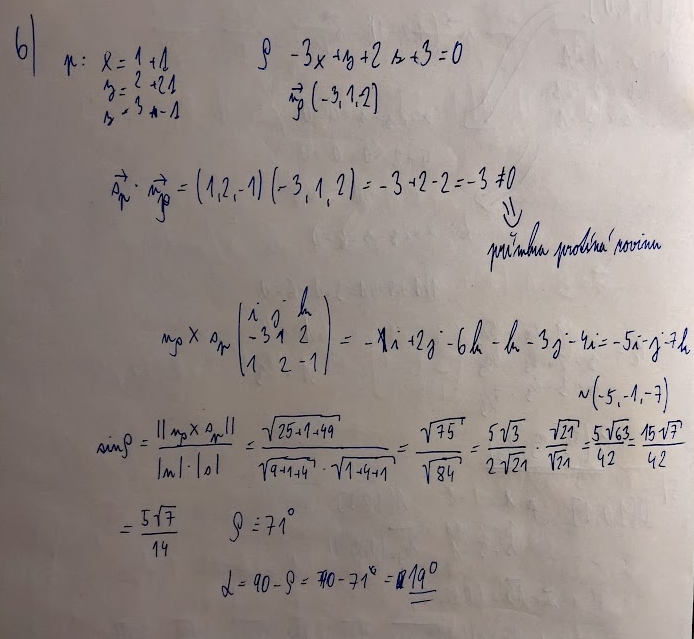 6) p: x = 1 + 1 ρ -3x+y+2z+3=0
y = 2 + 21
z = 3 - 1 n⃗ρ (-3,1,2)
s⃗p · n⃗ρ = (1,2,-1) (-3,1,2) = -3+2-2 = -3 ≠0
⇓
přímka protíná rovinu
nρ × sp (i j k
-3 1 2
1 2 -1) = -1i+2j-6k-k-3j-4i=-5i-j-7k
~(-5,-1,-7)
sinρ = ||nρ × sp|| / |n|·|s| = √25+1+49 / √9+1+4 · √1+4+1 = √75 / √84 = 5√3 / 2√21 · √21 / √21 = 5√63 / 42 = 15√7 / 42
= 5√7 / 14 ρ ≐ 71°
α = 90 - ρ = 90 - 71° = 19°